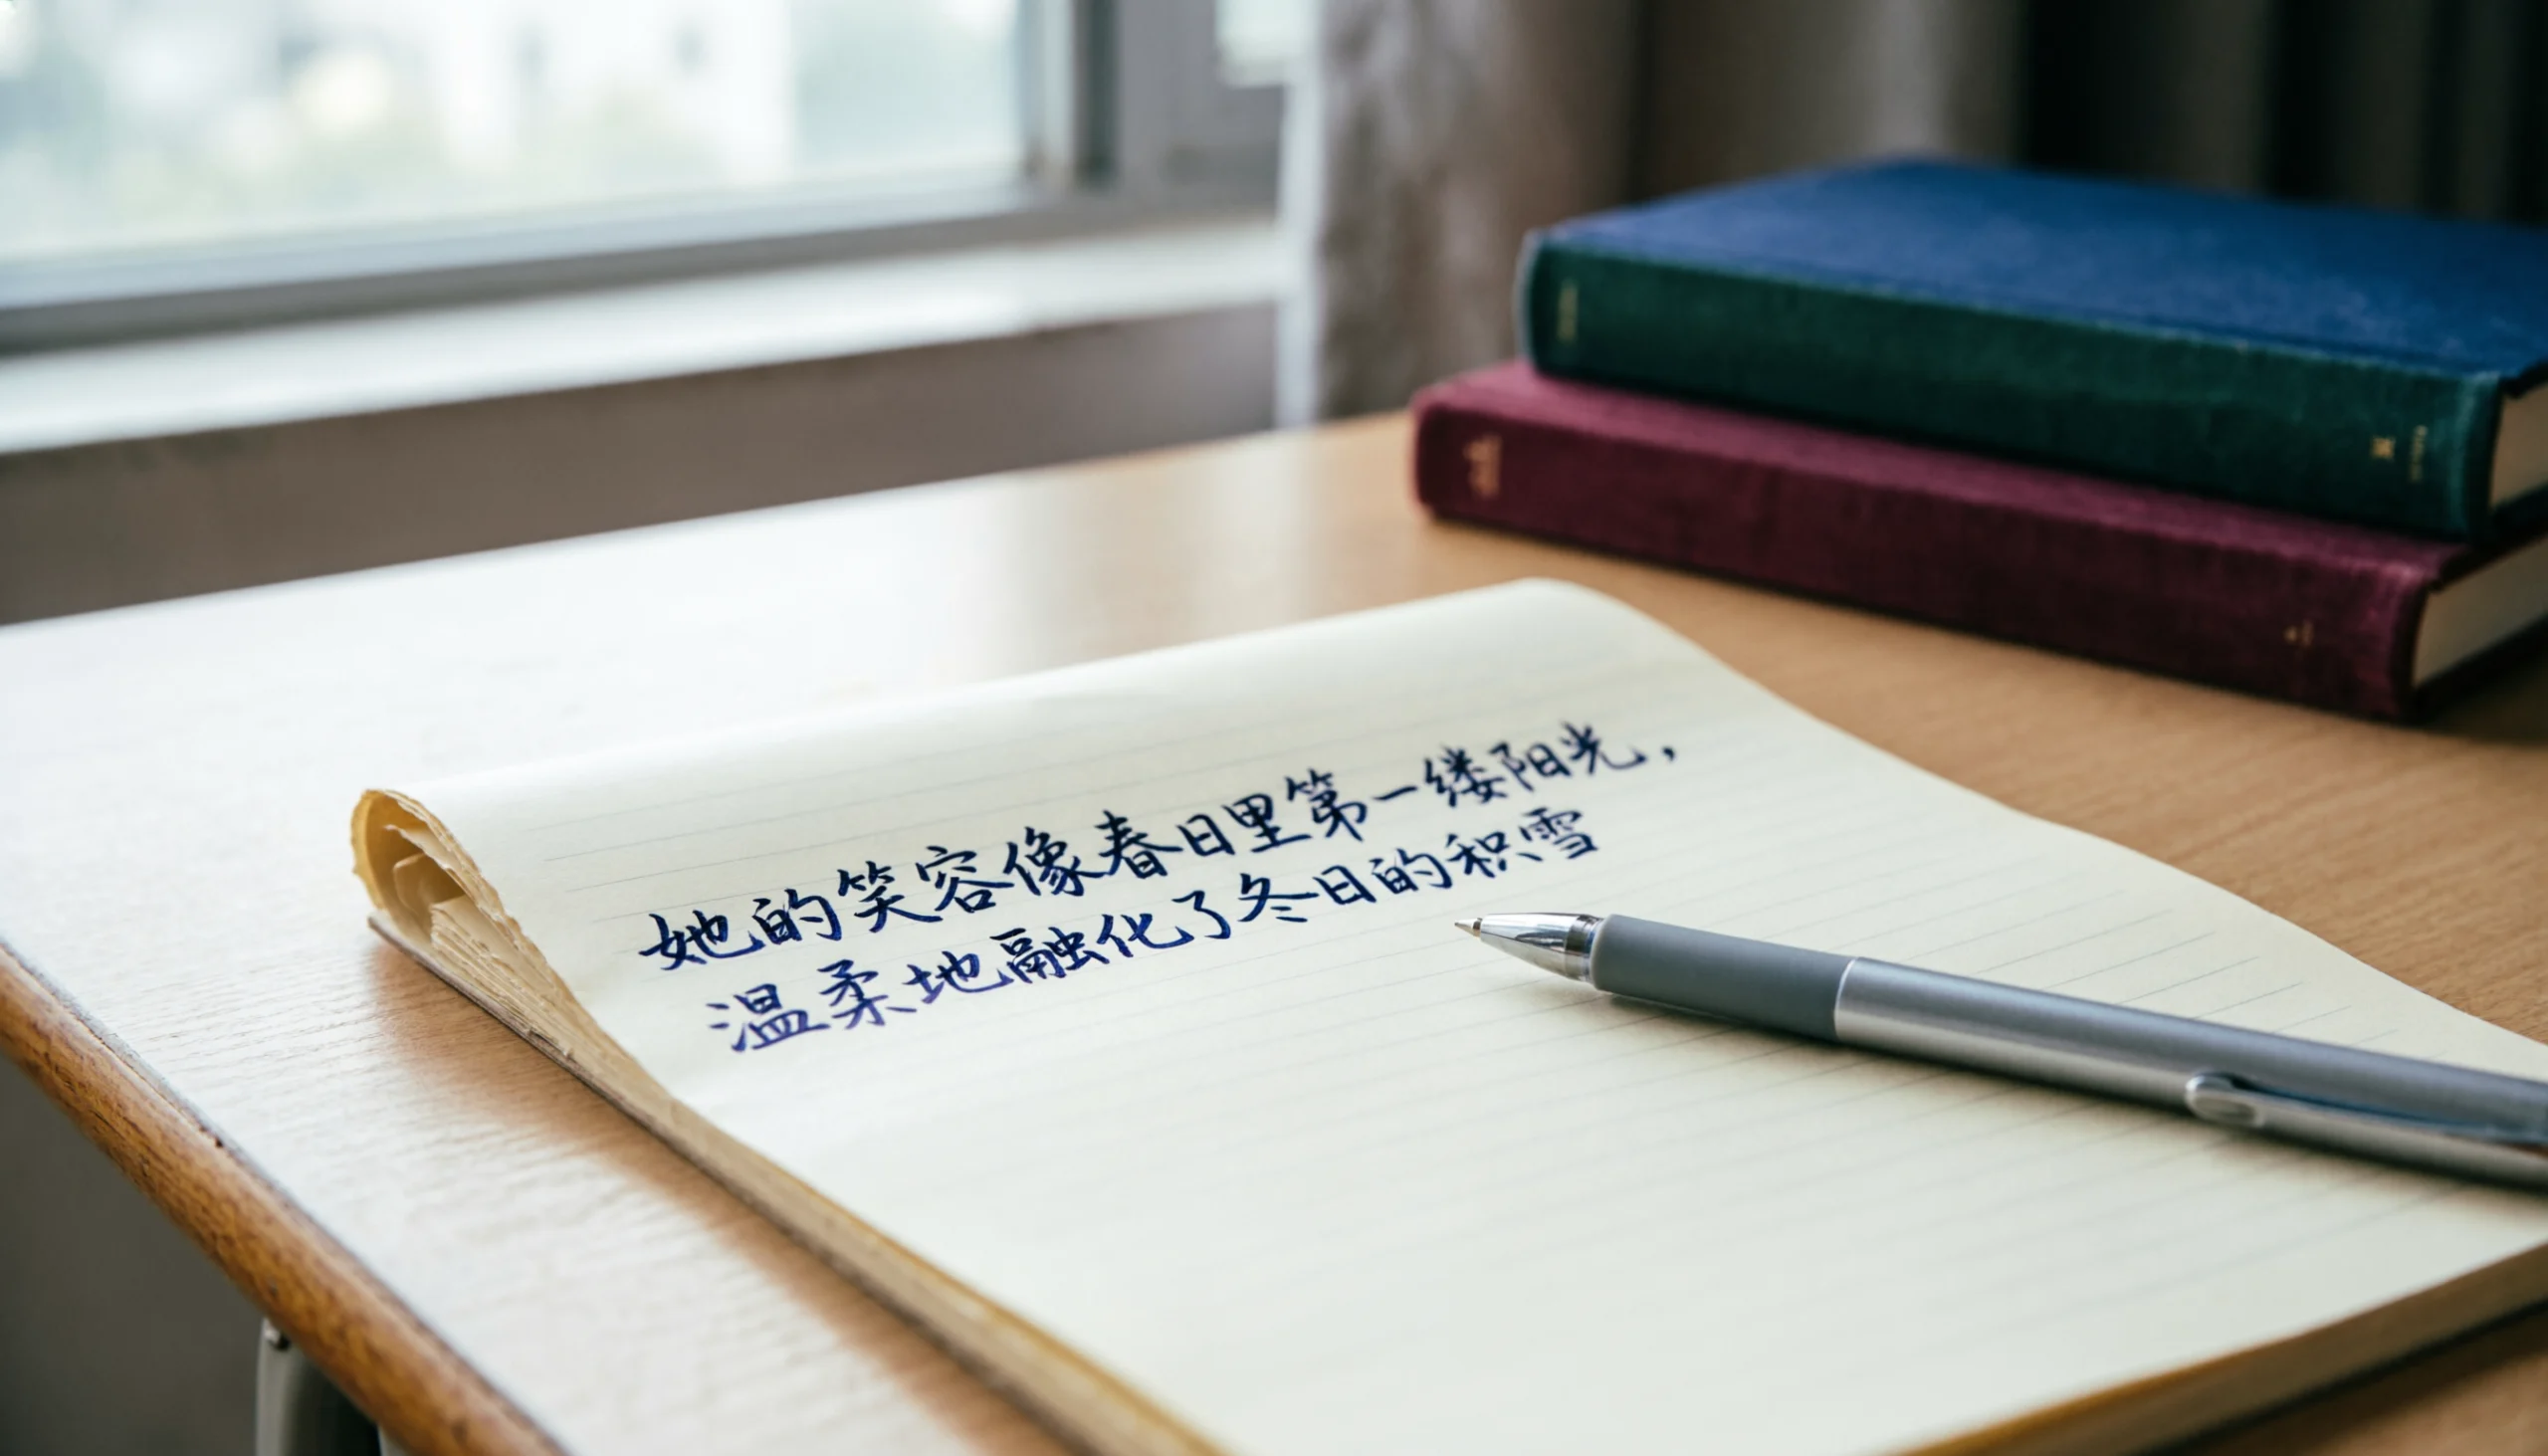 她的笑容像春日里第一缕阳光，
温柔地融化了冬日的积雪